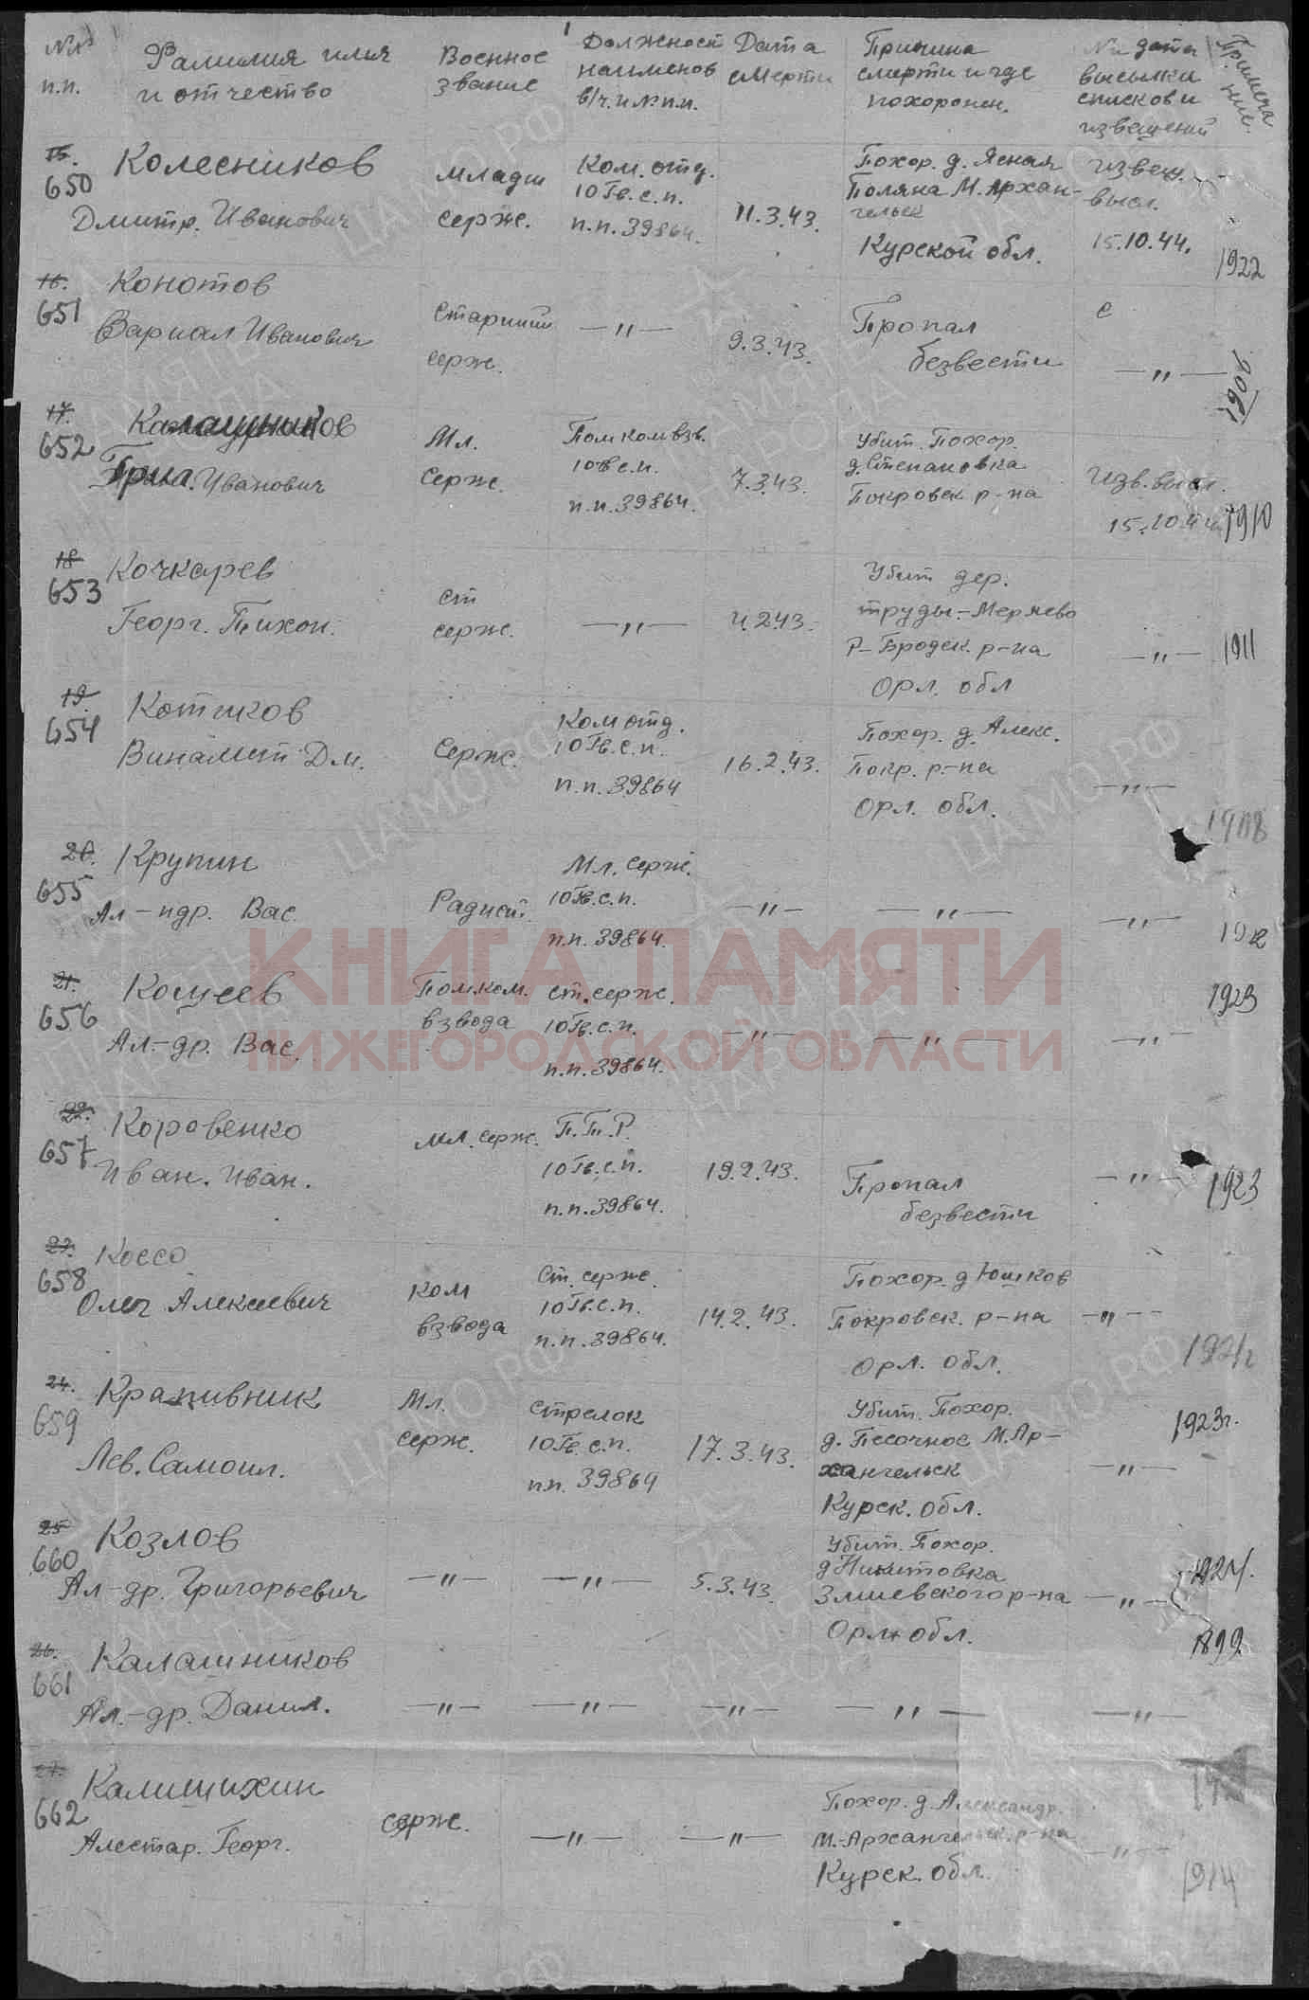 №№ п.п.
Фамилия имя и отчество
Военное звание
Должност наименов в/ч. и № п.п.
Дата смерти
Причина смерти и где похоронен.
№ и дата высылки списков и извещений
Примечание.
15. 650
Колесников
Дмитр. Иванович
младш серж.
Ком. отд. 10 Гв. с. п. п.п. 39864.
11.3.43.
Похор. д. Ясная Поляна М. Архангельск Курской обл.
извещ. высл. 15.10.44.
1922
16. 651
Конотов
Иванович
старший серж.
—〃—
9.3.43.
Пропал безвести
—〃—
1906
17. 652
Калашников
Иванович
Мл. Серж.
Помкомвзв. 10 Гв с.п. п.п. 39864.
7.3.43.
Убит. Похор. д. Степановка Покровск р-на
Изв. высл. 15.10.44
1910
18 653
Кочкарев
Георг. Тихон.
ст серж.
—〃—
Убит дер. труды-Меряево Орл. обл
—〃—
1911
19. 654
Котиков
Дм.
Серж.
Ком отд. 10 Гв. с. п. п.п. 39864
16.2.43.
Похор. д. Алекс. Покр. р-на Орл. обл.
—〃—
20. 655
Крупин
Ал-ндр. Вас.
Радист.
Мл. серж. 10 Гв. с. п. п.п. 39864.
—〃—
—〃—
—〃—
21. 656
Кощеев
Ал.-др. Вас.
Пом.ком. взвода
ст. серж. 10 Гв. с. п. п.п. 39864.
—〃—
—〃—
—〃—
1923
22. 657
Коровенко
Иван. Иван.
мл. серж.
П.Т.Р. 10 Гв. с. п. п.п. 39864.
19.2.43.
Пропал безвести
—〃—
1923
23. 658
Коссо
Олег Алексеевич
ком взвода
Ст. серж. 10 Гв. с. п. п.п. 39864.
14.2.43.
Похор. д Юшков Покровск. р-на Орл. обл.
—〃—
24. 659
Крапивник
Лев. Самоил.
Мл. серж.
стрелок 10 Гв. с. п. п.п. 39864
17.3.43.
Убит. Похор. д. Песочное М. Архангельск Курск. обл.
—〃—
1923г.
25 660
Козлов
Ал-др. Григорьевич
—〃—
—〃—
5.3.43.
Убит. Похор. д Никитовка Змиевского р-на Орл. обл.
—〃—
1924.
26. 661
Калашников
Ал.-др. Данил.
—〃—
—〃—
—〃—
—〃—
—〃—
1899
27. 662
Георг.
серж.
—〃—
—〃—
Похор. д. Александр. М.-Архангельск. р-на Курск. обл.
—〃—
1914
КНИГА ПАМЯТИ
НИЖЕГОРОДСКОЙ ОБЛАСТИ